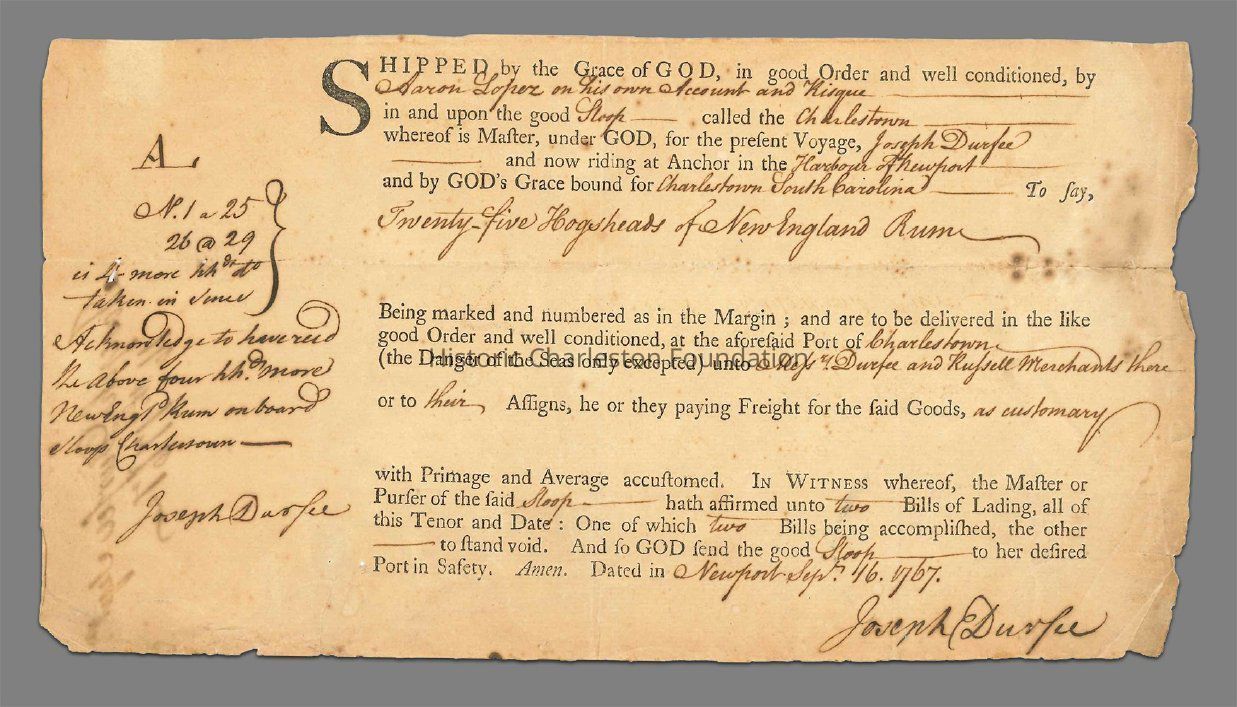 SHIPPED by the Grace of GOD, in good Order and well conditioned, by
Aaron Lopez on his own Account and Risque
in and upon the good Sloop called the Charlestown
whereof is Maſter, under GOD, for the preſent Voyage, Joseph Durfee
and now riding at Anchor in the Harbour of Newport
and by GOD's Grace bound for Charlestown South Carolina To ſay,
Twenty-five Hogsheads of New England Rum
Being marked and numbered as in the Margin ; and are to be delivered in the like
good Order and well conditioned, at the aforeſaid Port of Charlestown
(the Danger of the Seas only excepted) unto Mess.rs Durfee and Russell Merchants there
or to their Aſſigns, he or they paying Freight for the ſaid Goods, as customary
with Primage and Average accuſtomed. IN WITNESS whereof, the Maſter or
Purſer of the ſaid Sloop hath affirmed unto two Bills of Lading, all of
this Tenor and Date : One of which two Bills being accompliſhed, the other
to ſtand void. And ſo GOD ſend the good Sloop to her deſired
Port in Safety. Amen. Dated in Newport Sept. 16. 1767.
Joseph Durfee
AL
N. 1 a 25
26 @ 29
is 4 more hhds do
taken in since
Acknowledge to have recd
the above four hhds more
New Engd Rum on board
Sloop Charlestown
Joseph Durfee
Historic Charleston Foundation